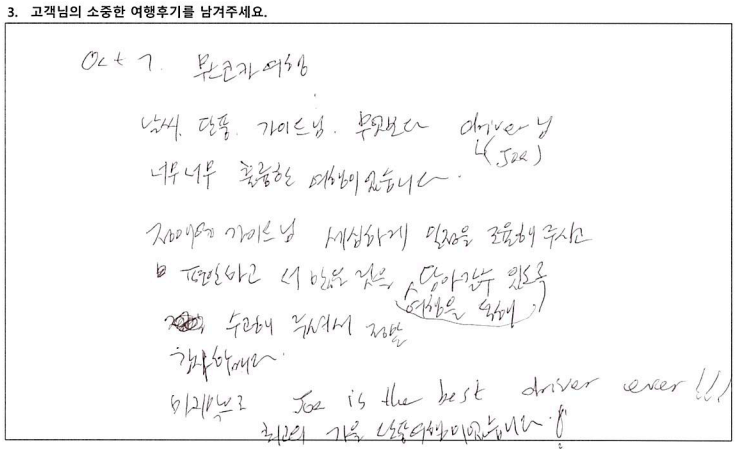 3. 고객님의 소중한 여행후기를 남겨주세요.
Oct 7. 무스코카 여행
날씨. 단풍. 가이드님. 무엇보다 driver님
(Joe)
너무너무 훌륭한 여행이었습니다.
가이드님 세심하게 일정을 조율해 주시고
편안하고 더 많은 것을 담아갈수 있도록
여행을 위해
수고해 주셔서 정말
감사합니다.
마지막으로 Joe is the best driver ever!!!
최고의 가을 단풍여행이었습니다.